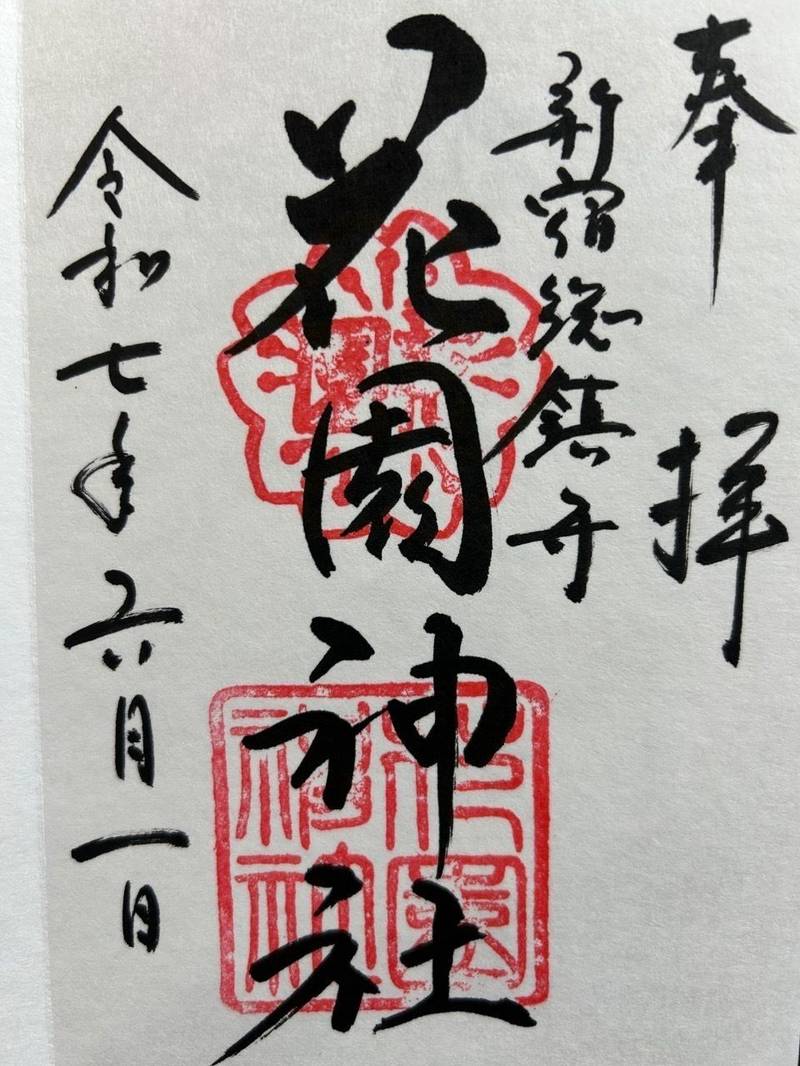 奉拝
新宿総鎮守
花園神社
令和七年六月一日
花園神社